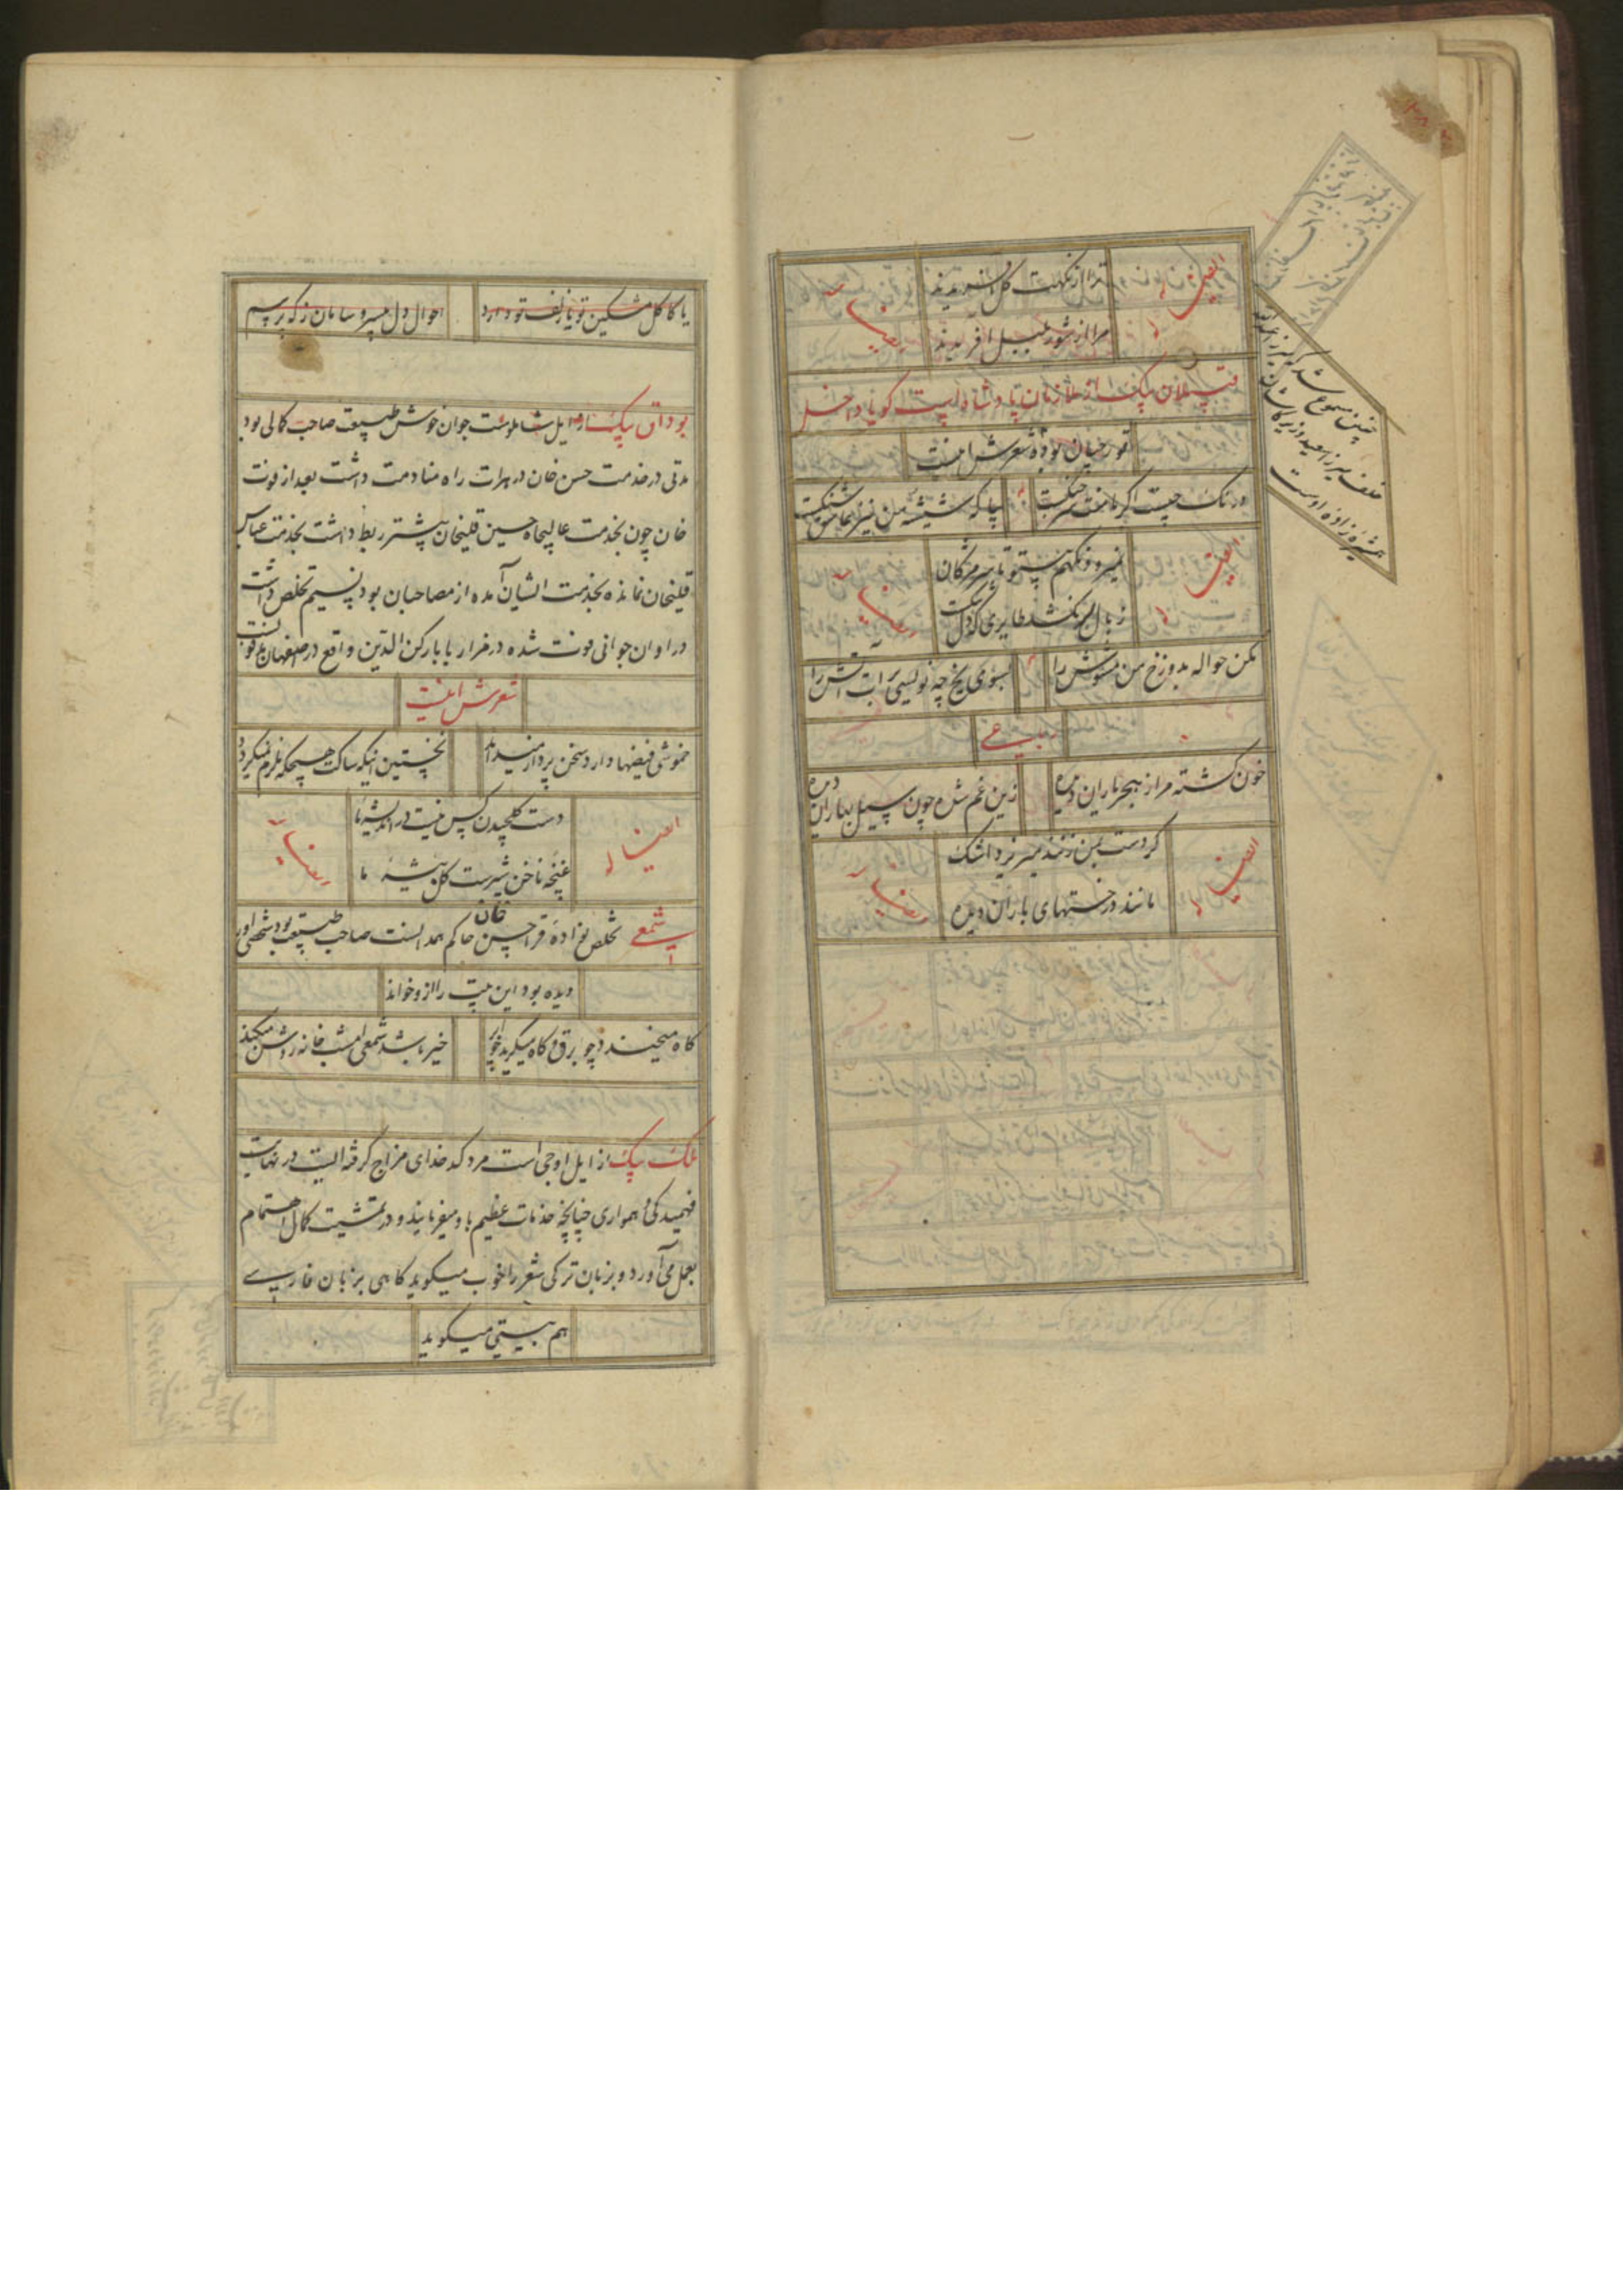 ایضا له
ترا از نکهت گل آفریدند
مرا از شور بلبل آفریدند
قپلان بیک از ملازمان پادشاه است گویا داخل
قورچیان بوده شعرش اینست
در سنگ چیست اگر بامنت سر جنگست
بیا که شیشه من نیز عاشق سنگست
ایضا له
نمیرود نگهم بیتو تا سر مژگان
ز بال
مکن حواله بدوزخ من مشوش را
بسوی یخ چه نویسی برات آتش را
رباعی
خون گشته مرا ز هجر یاران دیده
زین غم شده چون سیل بهاران دیده
ایضا له
گر دست بمن زنند میریزد اشک
مانند درختهای باران دیده
چنین مسموع شد که
خلف میرزا سعید وزیر کاشان
همشیره زاده اوست
یا کاکل مشکین تو یا زلف تو دارد
احوال دل بی سر و سامان ز که پرسم
بوداق بیک از ایل شاملوست جوان خوش طبیعت صاحب کمالی بود
مدتی در خدمت حسن خان در هرات راه منادمت داشت بعد از فوت
خان چون بخدمت عالیجاه حسین قلیخان پیشتر ربط داشت بخدمت عباس
قلیخان نمانده بخدمت ایشان آمده از مصاحبان بود نسیم تخلص داشت
در اوان جوانی فوت شده در مزار بابا رکن الدین واقع در صفهان مدفونست
شعرش اینست
خموشی فیضها دارد سخن پرداز میداند
نخستین اینکه ساکت هیچکه ملزم نمیگردد
ایضا له
دست گلچیدن کس نیست در اندیشه ما
غنچه ناخن شیرست گل بیشه ما
شمعی تخلص نوّاده قرا حسن خان حاکم همدانست صاحب طبیعت بود شخصی اورا
دیده بود این بیت را ازو خواند
گاه میخندد چو برق و گاه میگرید چو ابر
خیر باشد شمعی امشب خانه روشن میکند
ملک بیک از ایل اوجی است مرد کدخدای مزاج گرفته ایست در نهایت
فهمیدگی و همواری چنانچه خدمات عظیم باو میفرمایند و در تمشیت کمال اهتمام
بعمل می آورد و بزبان ترکی شعر را خوب میگوید گاهی بزبان فارسی
هم بیتی میگوید